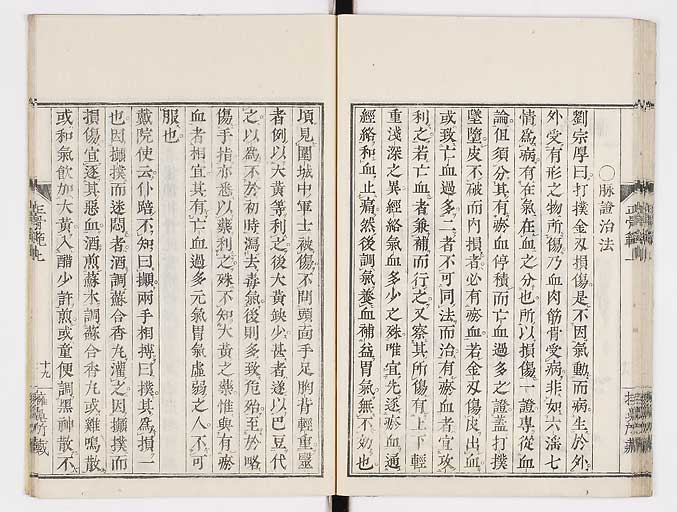 ○脉證治法
劉宗厚曰打撲金刃損傷是不因氣動而病生於外
外受有形之物所傷乃血肉筋骨受病非如六淫七
情爲病有在氣在血之分也所以損傷一證專從血
論但須分其有瘀血停積而亡血過多之證蓋打撲
墜墮皮不破而内損者必有瘀血若金刃傷皮出血
或致亡血過多二者不可同法而治有瘀血者宜攻
利之若亡血者兼補而行之又察其所傷有上下輕
重淺深之異經絡氣血多少之殊唯宜先逐瘀血通
經絡和血止痛然後調氣養血補益胃氣無不効也
頃見圍城中軍士被傷不問頭面手足胸背輕重醫
者例以大黄等利之後大黄缺少甚者遂以巴豆代
之以爲不於初時瀉去毒氣後則多致危殆至於略
傷手指亦悉以藥利之殊不知大黄之藥惟與有瘀
血者相宜其有亡血過多元氣胃氣虚弱之人不可
服也
戴院使云仆踣不知曰攧兩手相搏曰撲其爲損一
也因攧撲而迷悶者酒調蘇合香丸灌之因攧撲而
損傷宜逐其惡血酒煎蘇木調蘇合香丸或雞鳴散
或和氣飲加大黄入醋少許煎或童便調黑神散不
正骨範
十九